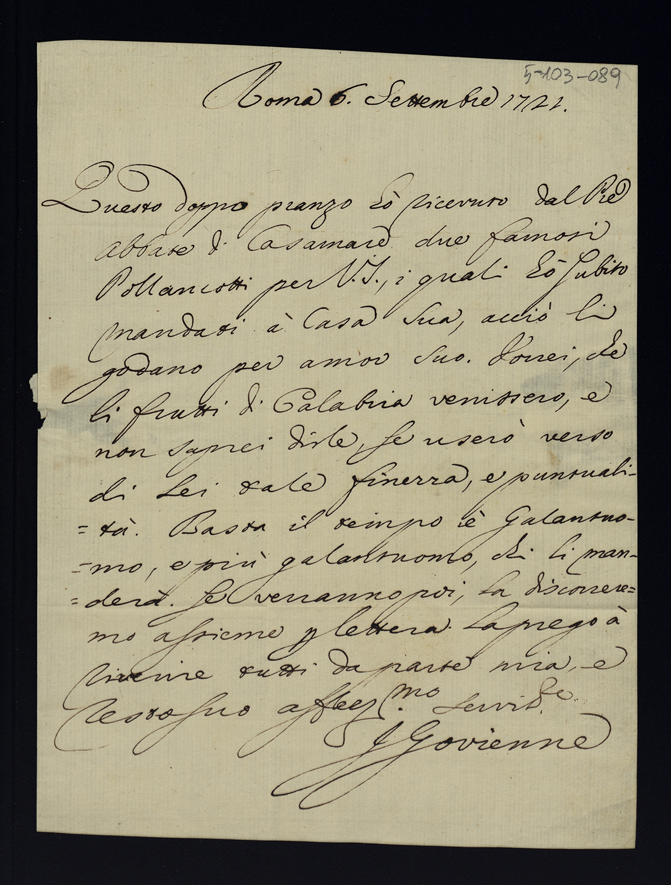 5-103-089
Roma 6. Settembre 1721.
Questo doppo pranzo hò ricevuto dal Pre
Abbate di Casamare due famosi
Pollancotti per V.S., i quali hò subito
mandati à Casa sua, acciò li
godano per amor suo. Vorrei, che
li frutti di Calabria venissero, e
non saprei dirle, se userò verso
di Lei tale finezza, e puntuali-
=tà. Basta il tempo è Galantuo-
=mo, e più galantuomo, chi li man-
=derà. Se verranno poi, la discorrere=
mo assieme p lettera. La prego à
riverire tutti da parte mia, e
resto suo affez.mo Servit.re
Govienne